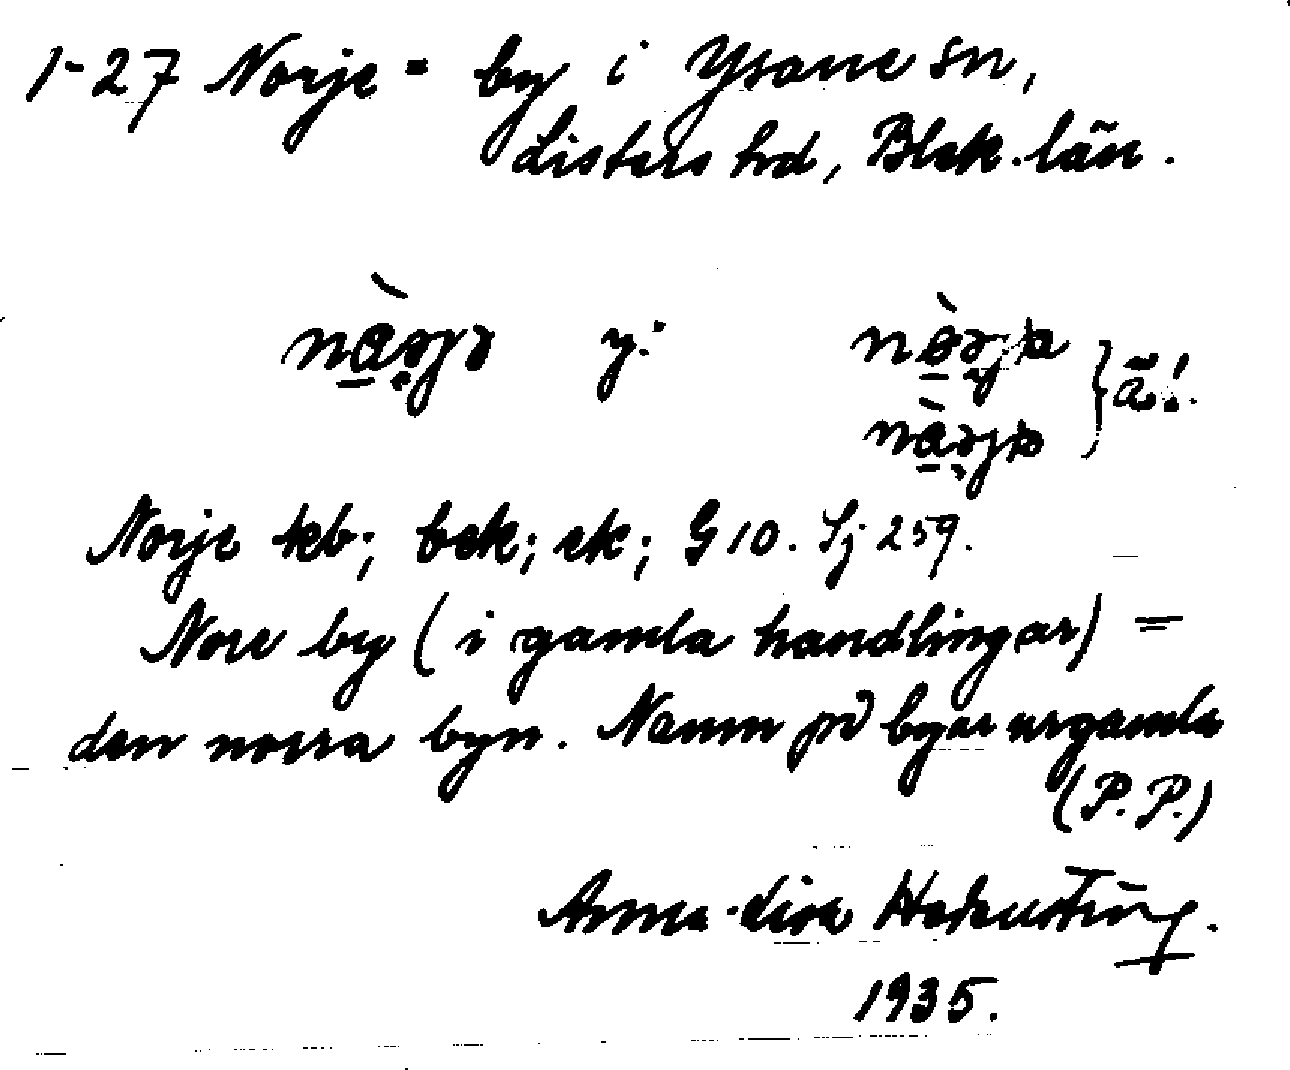 1-27 Norje = by i Ysane sn,
Listers hd, Blek. län.
y:
ā!
Norje kb; bek; ek; G 10. Sj 259.
Nore by (i gamla handlingar) =
den norra byn. Namn på byar urgamla
(P.P.)
Anna-Lisa
1935.